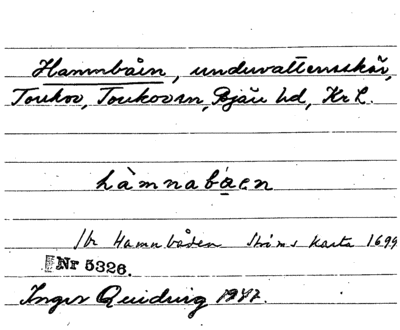 Hamnbåin, undervattensskär,
Torhov, Torhovsn, Bjäre hd, Kr L.
hàmnabåen
Jbr Hamnbåden Ströms karta 1699
Nr 5326.
Inger Quiding 1947.